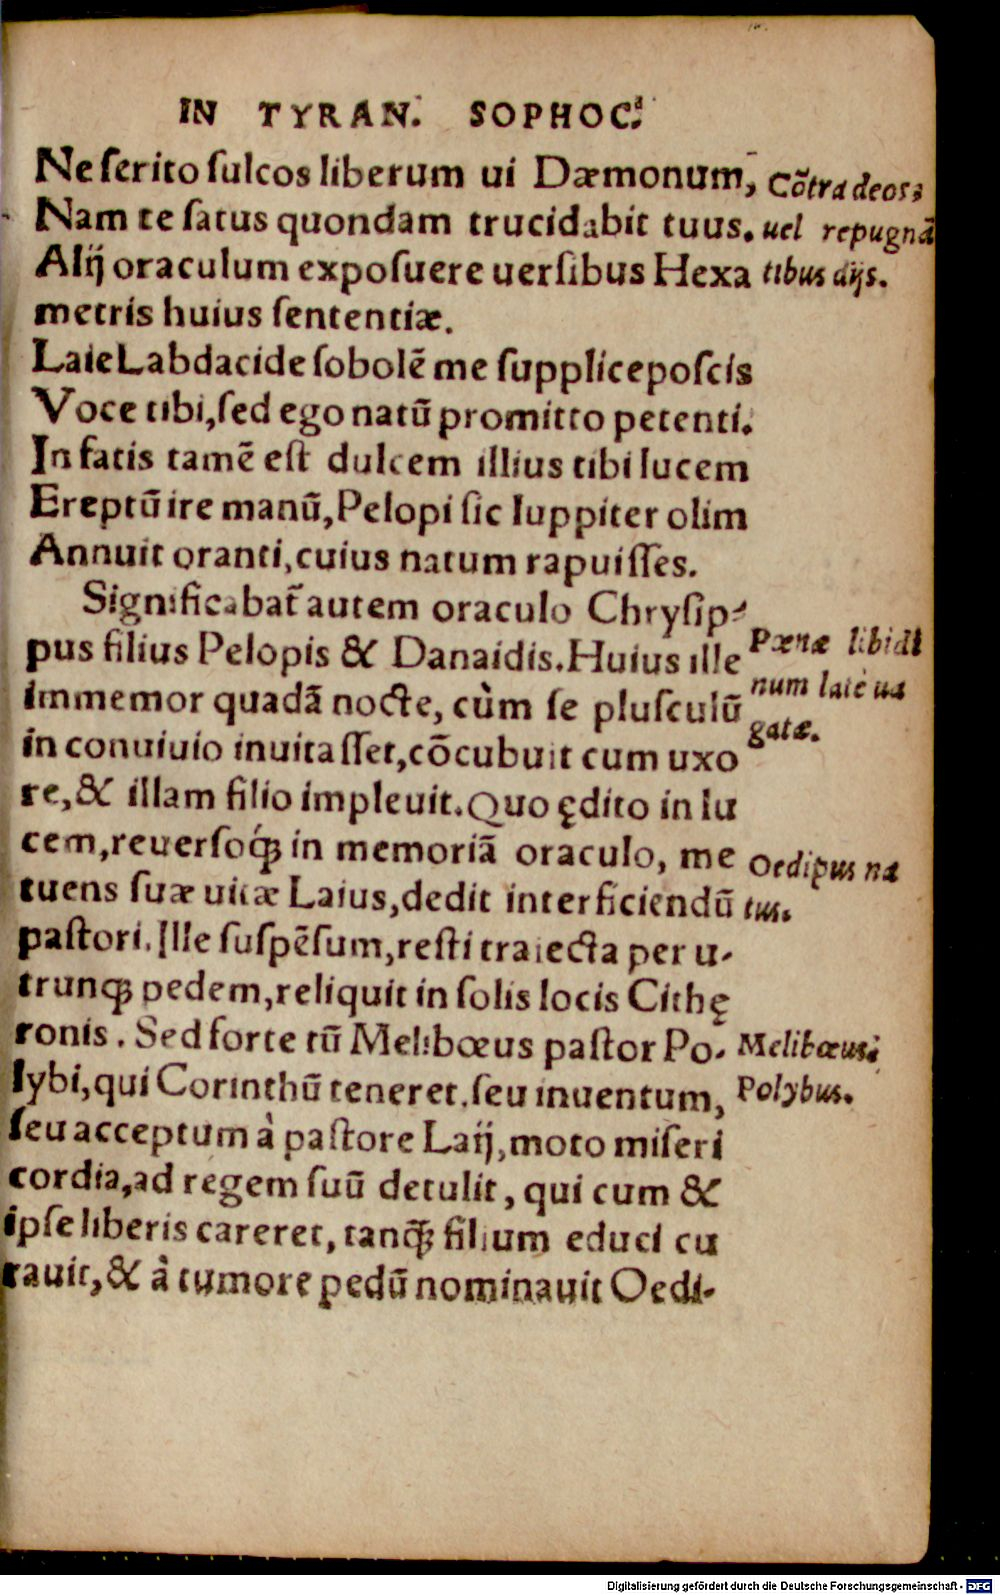 IN TYRAN. SOPHOC.
Ne serito sulcos liberum ui Dæmonum,
Nam te satus quondam trucidabit tuus.
Alij oraculum exposuere uersibus Hexa
metris huius sententiæ.
Laie Labdacide sobolē me supplice poscis
Voce tibi, sed ego natū promitto petenti.
In fatis tamē est dulcem illius tibi lucem
Ereptū ire manū, Pelopi sic Iuppiter olim
Annuit oranti, cuius natum rapuisses.
Significabat̃ autem oraculo Chrysip-
pus filius Pelopis & Danaidis. Huius ille
immemor quadā nocte, cùm se plusculū
in conuiuio inuitasset, cōcubuit cum uxo
re, & illam filio impleuit. Quo ędito in lu
cem, reuersoq́ꝫ in memoriā oraculo, me
tuens suæ uitæ Laius, dedit interficiendū
pastori. Ille suspēsum, resti traiecta per u-
trunqꝫ pedem, reliquit in solis locis Cithę
ronis. Sed forte tū Melibœus pastor Po-
lybi, qui Corinthū teneret, seu inuentum,
seu acceptum à pastore Laij, moto miseri
cordia, ad regem suū detulit, qui cum &
ipse liberis careret, tanq̃ꝫ filium educi cu
rauit, & à tumore pedū nominauit Oedi-
Cōtra deos,
uel repugnā
tibus dijs.
Pœnæ libidi
num latè ua
gatæ.
Oedipus na
tus.
Melibœus.
Polybus.
Digitalisierung gefördert durch die Deutsche Forschungsgemeinschaft - DFG